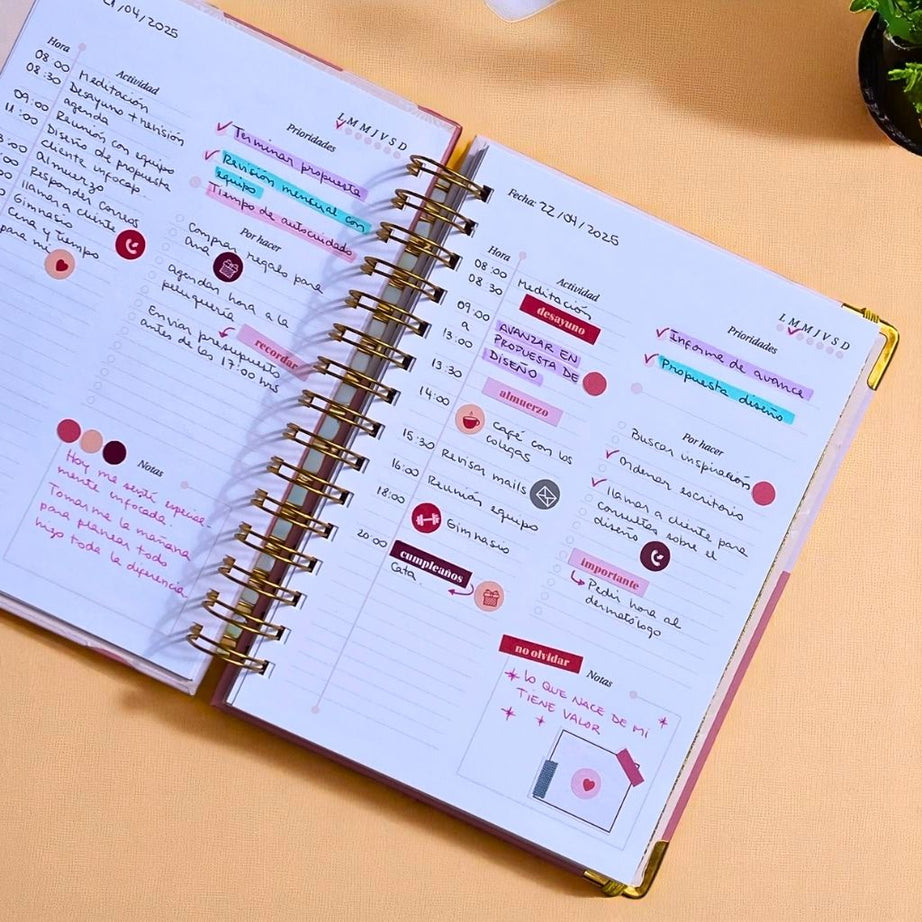 /04/2025
Hora
Actividad
08:00
08:30
Meditación
Desayuno + revisión
agenda
09:00
Reunión con equipo
11:00
Diseño de propuesta
cliente infocap
Almuerzo
Responder correos
llamar a cliente
Gimnasio
Cena y tiempo
para mi
L M M J V S D
Prioridades
Terminar propuesta
Revisión mensual con
equipo
Tiempo de autocuidado
Por hacer
Comprar regalo para
Ana
Agendar hora a la
peluquería
Enviar presupuesto
antes de las 17:00 hrs
recordar
Notas
Hoy me sentí especial-
mente enfocada.
Tomarme la mañana
para planear todo
hizo toda la diferencia
Fecha: 22/04/2025
Hora
Actividad
08:00
08:30
Meditación
desayuno
09:00
a
13:00
AVANZAR EN
PROPUESTA DE
DISEÑO
13:30
almuerzo
14:00
Café con los
colegas
15:30
Revisar mails
16:00
Reunión equipo
18:00
Gimnasio
20:00
cumpleaños
Cata.
L M M J V S D
Prioridades
Informe de avance
Propuesta diseño
Por hacer
Buscar inspiración
Ordenar escritorio
llamar a cliente para
consultar sobre el
diseño
importante
Pedir hora al
dermatólogo
no olvidar
Notas
LO QUE NACE DE MI
TIENE VALOR